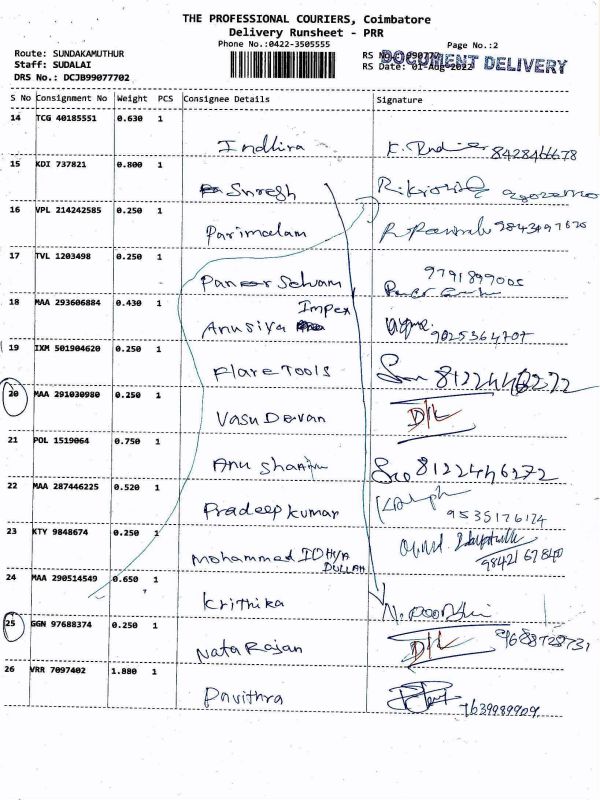 THE PROFESSIONAL COURIERS, Coimbatore
Delivery Runsheet - PRR
Phone No.:0422-3505555
Page No.:2
Route: SUNDAKAMUTHUR
Staff: SUDALAI
DRS No.: DCJB99077702
RS Date: 01-Aug-2022
DOCUMENT DELIVERY
S No Consignment No Weight PCS Consignee Details Signature
14 TCG 40185551 0.630 1
Indhira
15 KDI 737821 0.800 1
Suresh
16 VPL 214242585 0.250 1
Parimalam
17 TVL 1203498 0.250 1
Paneer Selvam 9791899005
18 MAA 293606884 0.430 1
Impex
Anusiya 9025364707
19 IXM 501904620 0.250 1
Flare Tools
20 MAA 291030980 0.250 1
Vasu Devan D/L
21 POL 1519064 0.750 1
Anu 8122446272
22 MAA 287446225 0.520 1
Pradeep kumar 9535176174
23 KTY 9848674 0.250 1
Mohammed
DULLAH
24 MAA 290514549 0.650 1
Krithika
25 GGN 97688374 0.250 1
Nata Rajan D/L 9688728731
26 VRR 7097402 1.880 1
Pavithra 7639989909